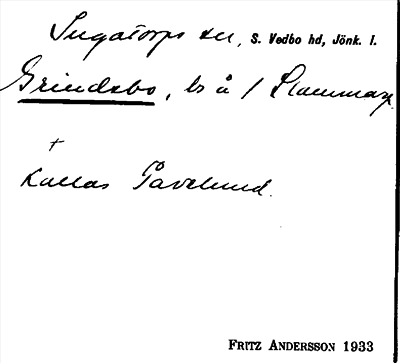 Ingatorps sn, S. Vedbo hd, Jönk. l.
Grindsbo, ls å / Stammarp
+
kallas Påvelund.
FRITZ ANDERSSON 1933